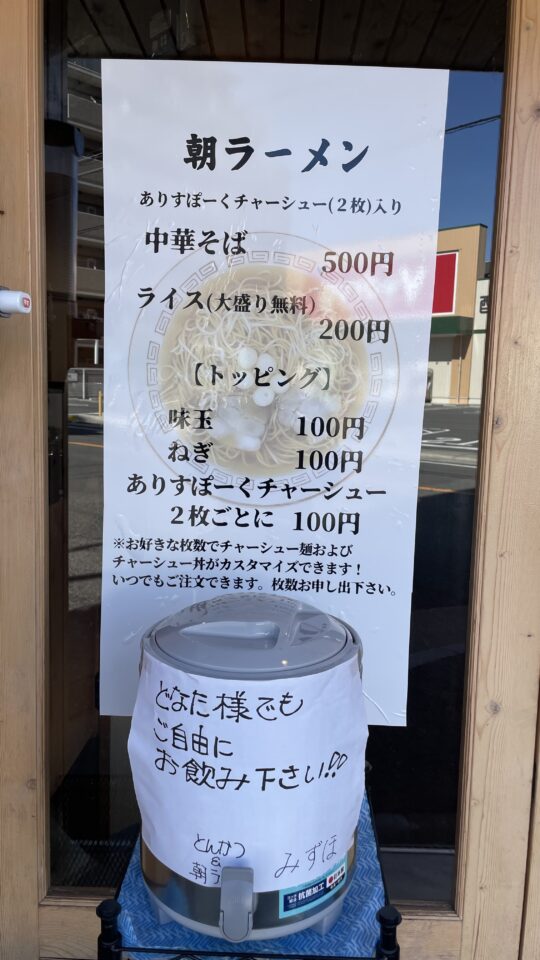 朝ラーメン
ありすぽーくチャーシュー(2枚)入り
中華そば 500円
ライス(大盛り無料) 200円
【トッピング】
味玉 100円
ねぎ 100円
ありすぽーくチャーシュー
2枚ごとに 100円
※お好きな枚数でチャーシュー麺および
チャーシュー丼がカスタマイズできます!
いつでもご注文できます。枚数お申し出下さい。
どなた様でも
ご自由に
お飲み下さい!!
とんかつ
&
朝ラ
みずほ
抗菌加工